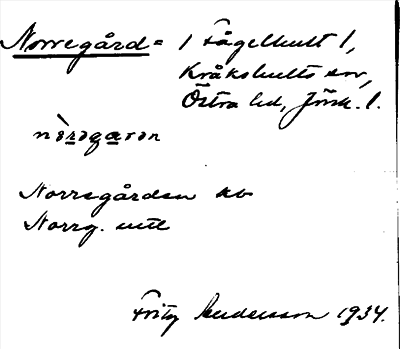 Norregård = 1 Fågelhult 1,
Kråkshults sn,
Östra hd, Jönk. l.
nòrəgarən
Norregården kb
Norrg. uttl
Fritz Andersson 1934.